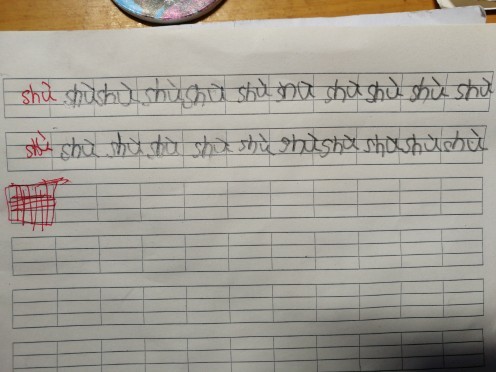 shù shù shù shù shù shù shù shù shù shù shù
shù shù shù shù shù shù shù shù shù shù shù